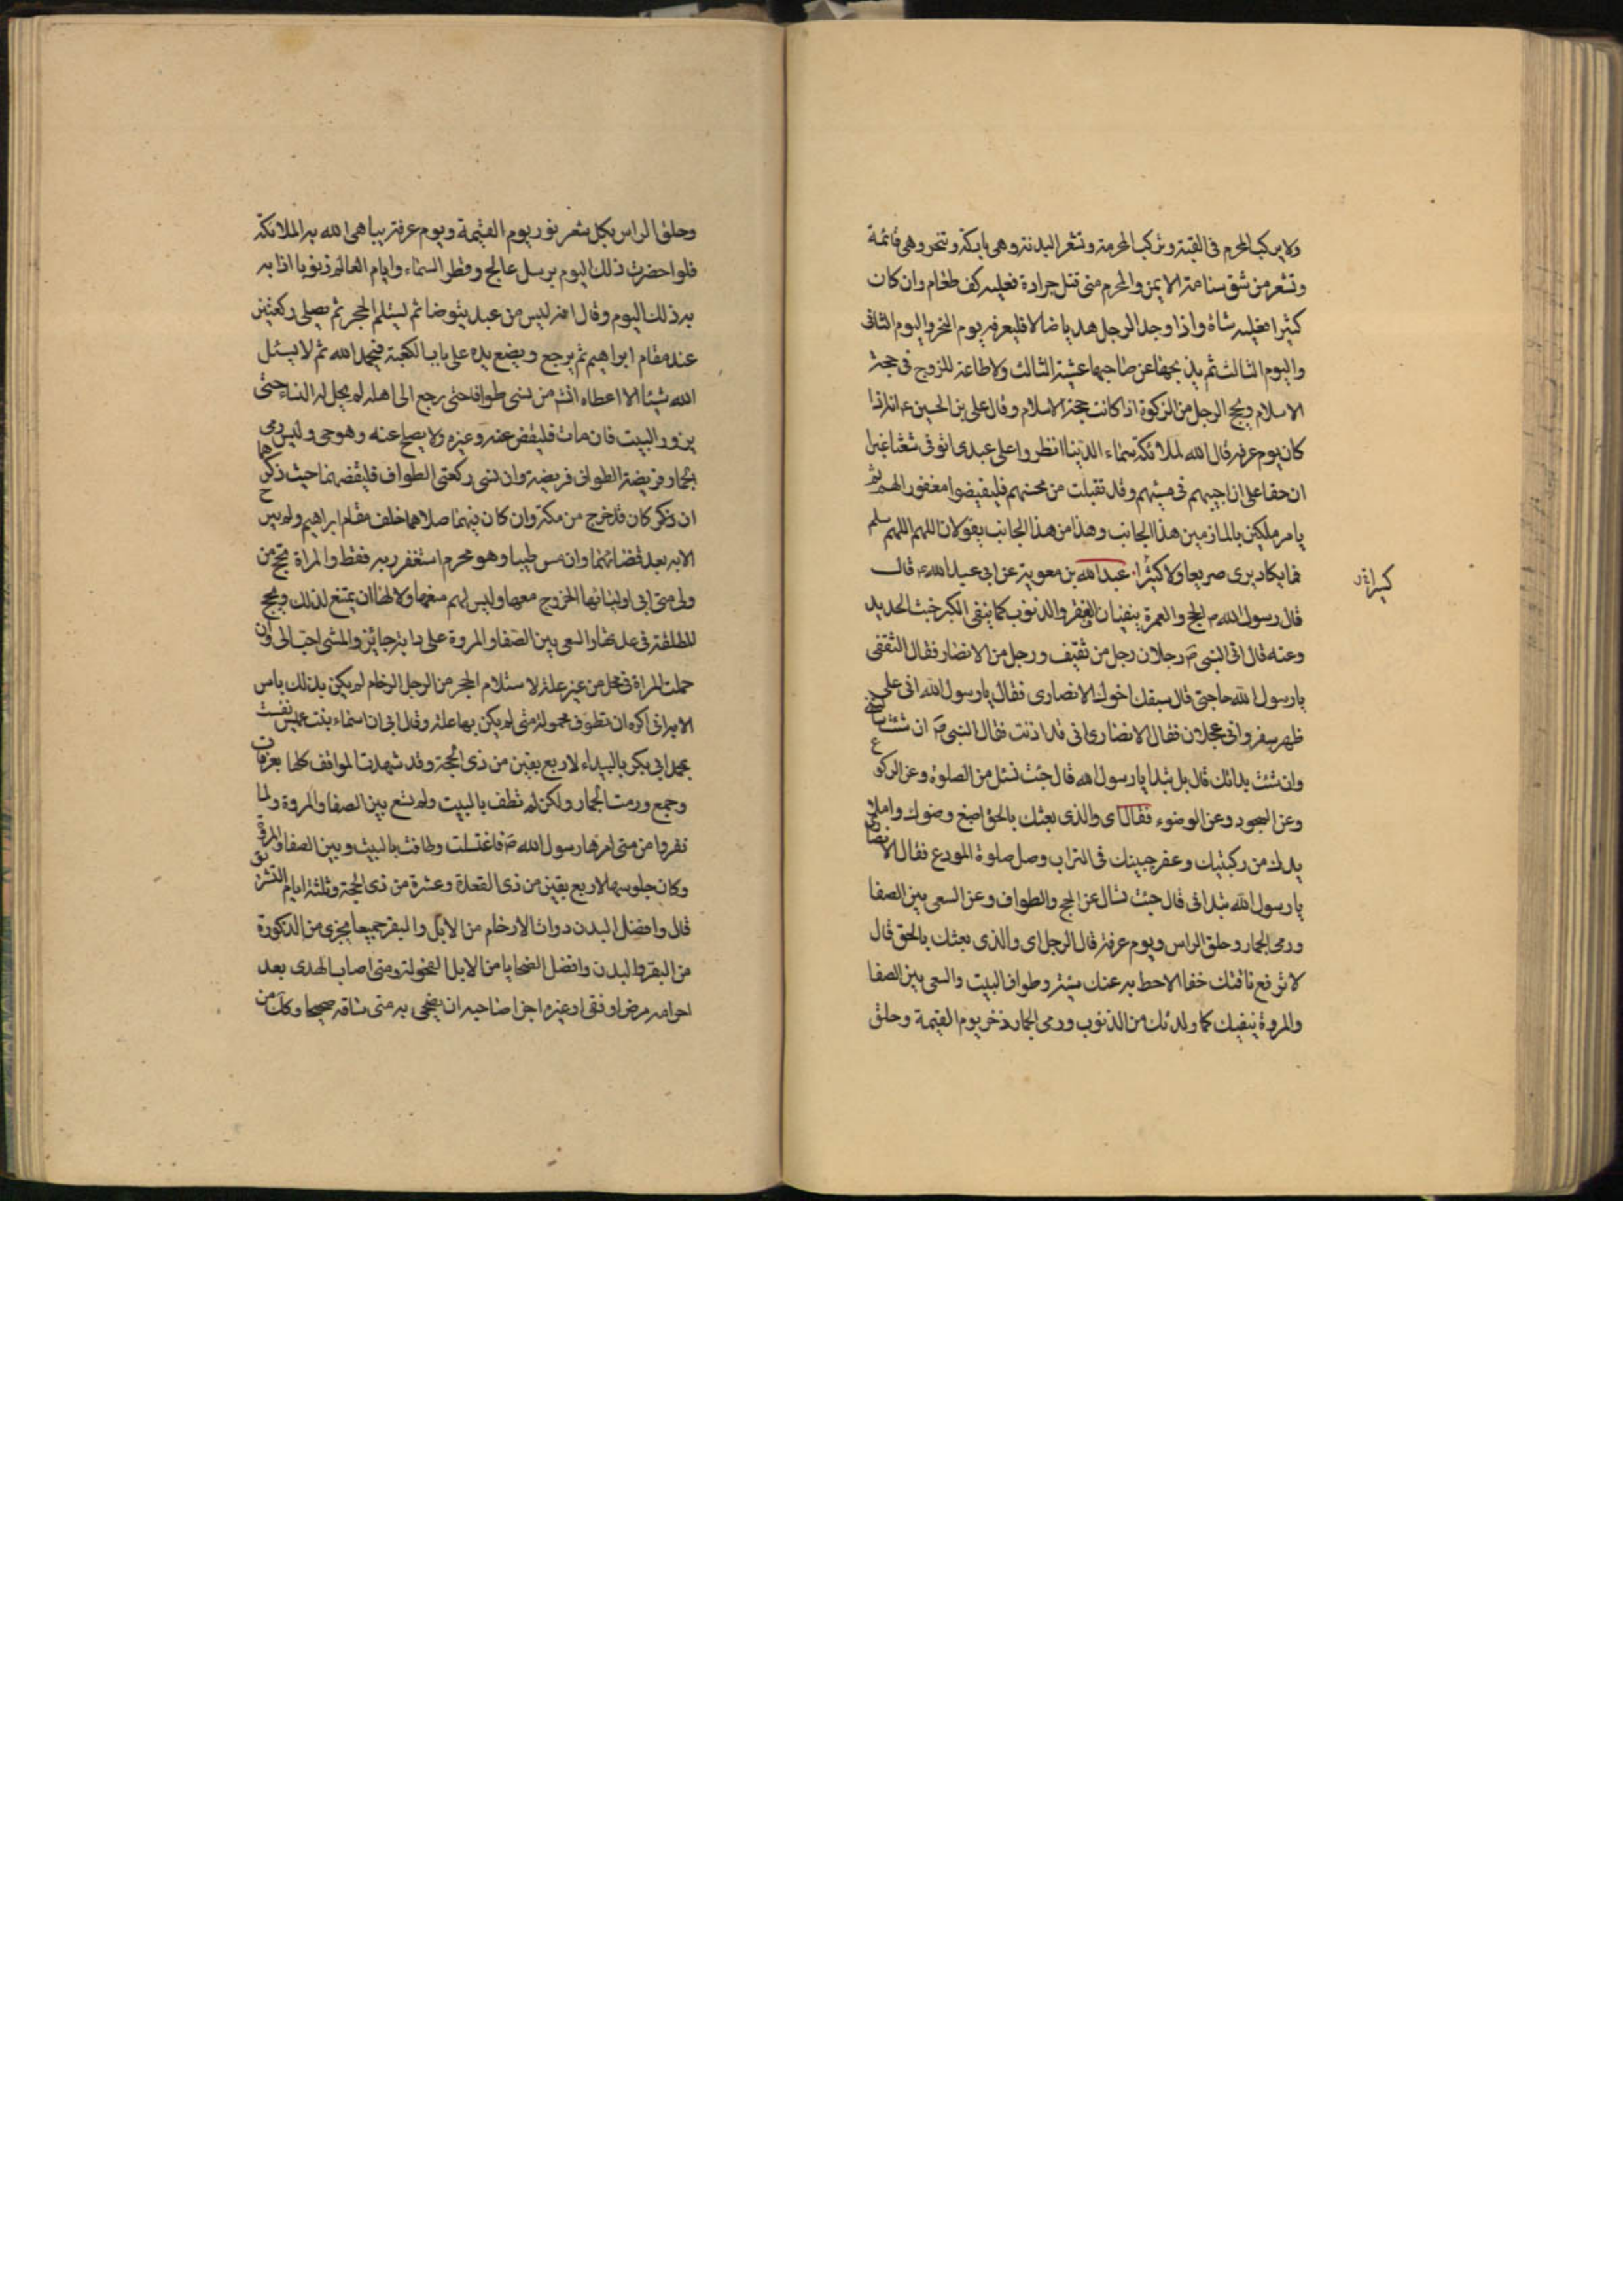 ولا يركب المحرم فى القبة وتركب المحرمة وتشعر البدنة وهى باركة وتنحر وهى قائمة
وتشعر من شق سنامه الايمن والمحرم متى قتل جرادة فعليه كف طعام وان كان
كثيرا فعليه شاة واذا وجد الرجل هديا ضالا فليعرفه يوم النحر واليوم الثانى
واليوم الثالث ثم يذبحها عن صاحبها عشية الثالث ولا طاعة للزوج فى حجة
الاسلام ويحج الرجل من الزكوة اذا كانت حجة الاسلام وقال على بن الحسين ع انه اذا
كان يوم عرفه قال الله لملائكة سماء الدنيا انظروا على عبدى اتوفى شعثا غبرا
ان حقا على ان اجيبهم فى مسيئهم وقد تقبلت من محسنهم فليفيضوا مغفورا لهم ثم
يامر ملكين بالمازمين هذا الجانب وهذا من هذا الجانب يقولان اللهم اللهم سلم
فما يكاد يرى صريعا ولا كثيرا عبد الله بن معوية عن ابى عبد الله ع قال
كسيرا
قال رسول الله ص الحج والعمرة ينفيان الفقر والذنوب كما ينفى الكير خبث الحديد
وعنه قال اتى النبى ص رجلان رجل من ثقيف ورجل من الانصار فقال الثقفى
يا رسول الله حاجتى قال سبقك اخوك الانصارى فقال يا رسول الله انى على
ظهر سفر وانى عجلان فقال الانصارى انى قد اذنت فقال النبى ص ان شئت
وان شئت بداتك قال بل تبدا يا رسول الله قال جئت تسئل من الصلوة وعن الركوع
وعن السجود وعن الوضوء فقال اى والذى بعثك بالحق اصبغ وضوك واملا
يديك من ركبتيك وعفر جبينك فى التراب وصل صلوة المودع فقال الانصارى
يا رسول الله تبدانى قال جئت تسال عن الحج والطواف وعن السعى بين الصفا
ورمى الجمار وحلق الراس ويوم عرفة قال الرجل اى والذى بعثك بالحق قال
لا ترفع ناقتك خفا الا حط به عنك سيئة وطواف البيت والسعى بين الصفا
والمروة ينفيك كما ولدتك من الذنوب ورمى الجمار ذخر يوم القيمة وحلق
وحلق الراس بكل شعر نور يوم القيمة ويوم عرفة يباهى الله به الملائكة
فلو احضرت ذلك اليوم برمل عالج وقطر السماء وايام العالم ذنوبا اذابه
به ذلك اليوم وقال انه ليس من عبد يتوضا ثم ليستلم الحجر ثم يصلى ركعتين
عند مقام ابراهيم ثم يرجع ويضع يده على باب الكعبة فيحمد الله ثم لا يسئل
الله شيئا الا اعطاه انثم من نسى طوافا حتى رجع الى اهله لم يحل له النساء حتى
يزور البيت فان مات فليقض عنه وغيره ولا يصلح عنه وهو حى وليس رمى
الجمار فريضة الطواف فريضة وان نسى ركعتى الطواف فليقضهما حيث ذكرها
ان ذكر كان قد خرج من مكة وان كان فيهما صلاهما خلف مقام ابراهيم ولم يبرح
الا به بعد قضائهما وان مس طيبا وهو محرم استغفر ربه فقط والمراة تحج من
ولى متى ابى اوليائها الخروج معها وليس لهم منعها ولا لها ان يمتنع لذلك ويحج
المطلقة فى عدتها والسعى بين الصفا والمروة على دابة جائز والمشى احب الى وان
حملت المراة فى محمل من غير علة لاستلام الحجر من الرجل الزحام لم يكن بذلك باس
الا انى اكره ان تطوف محمولة متى لم يكن بها علة وقال ابى ان اسماء بنت عميس نفست
بمحمد ابى بكر بالبيداء لاربع بقين من ذى الحجة وقد شهدت المواقف كلها بعرفات
وجمع ورمت الجمار ولكن لم تطف بالبيت ولم تسع بين الصفا والمروة ولما
نفروا من منى امرها رسول الله ص فاغتسلت وطافت بالبيت وبين الصفا والمروة
وكان جلوسها لاربع بقين من ذى القعدة وعشرة من ذى الحجة وثلثة ايام التشريق
قال وافضل البدن دوات الارحام من الابل والبقر جميعا يجزى من الذكورة
من البقر والبدن وافضل الضحايا من الابل الفحولة ومتى اصاب الهدى بعد
احرامه مرض او فقا او غيره اجزا صاحبه ان يضحى به متى ساقه صحيحا وكل من